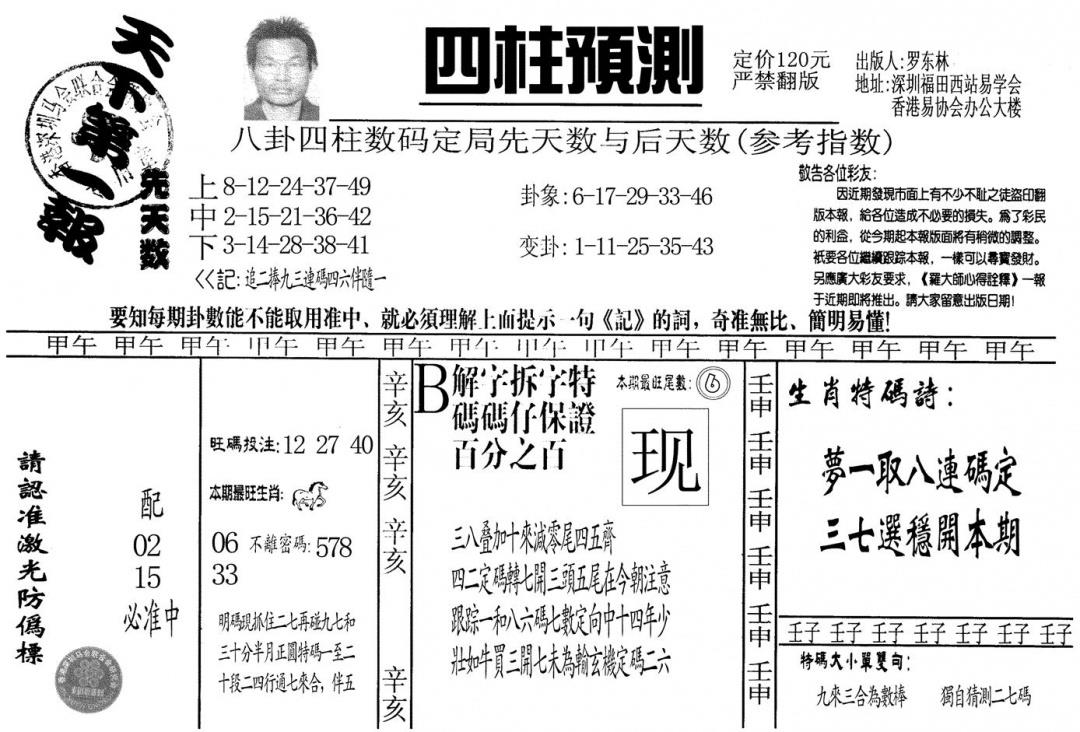 天下第一報
四柱預測
定价120元
严禁翻版
出版人:罗东林
地址:深圳福田西站易学会
香港易协会办公大楼
八卦四柱数码定局先天数与后天数(参考指数)
先天数
上 8-12-24-37-49
中 2-15-21-36-42
下 3-14-28-38-41
<<記:追二捧九三連碼四六伴隨一
卦象:6-17-29-33-46
变卦:1-11-25-35-43
敬告各位彩友:
因近期發現市面上有不少不耻之徒盜印翻
版本報,給各位造成不必要的損失。爲了彩民
的利益,從今期起本報版面將有稍微的調整。
衹要各位繼續跟踪本報,一樣可以尋寶發財。
另應廣大彩友要求,《羅大師心得詮釋》一報
于近期即將推出。請大家留意出版日期!
要知每期卦數能不能取用准中、就必須理解上面提示一句《記》的詞,奇准無比、簡明易懂!
甲午 甲午 甲午 甲午 甲午 甲午 甲午 甲午 甲午 甲午 甲午 甲午 甲午 甲午 甲午
請認准激光防僞標
配
02
15
必准中
旺碼投注:12 27 40
本期最旺生肖:
06 不離密碼:578
33
明碼現抓住二七再碰九七和
三十分半月正圓特碼一至二
十段二四行通七來合,伴五
辛亥 辛亥 辛亥 辛亥
B解字拆字特
碼碼仔保證
百分之百
本期最旺尾數:6
现
三八叠加十來減零尾四五齊
四二定碼轉七開三頭五尾在今朝注意
跟踪一和八六碼七數定向中十四年少
壯如牛買三開七未為輸玄機定碼二六
壬申 壬申 壬申 壬申 壬申 壬申
生肖特碼詩:
夢一取八連碼定
三七選穩開本期
壬子 壬子 壬子 壬子 壬子 壬子 壬子
特碼大小單雙句:
九來三合為數棒 獨自猜測二七碼